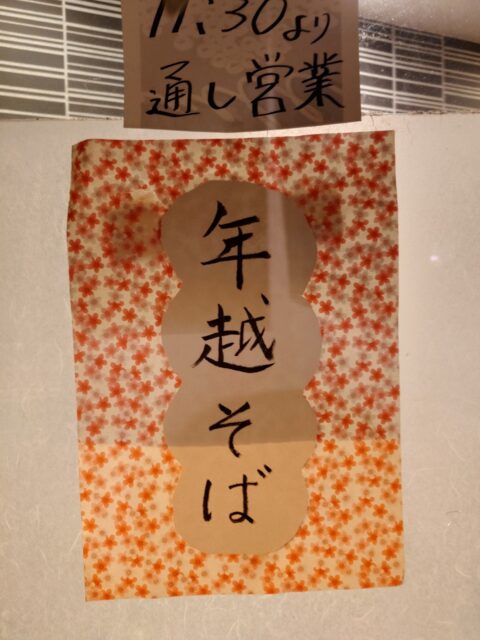 11:30より
通し営業
年越そば